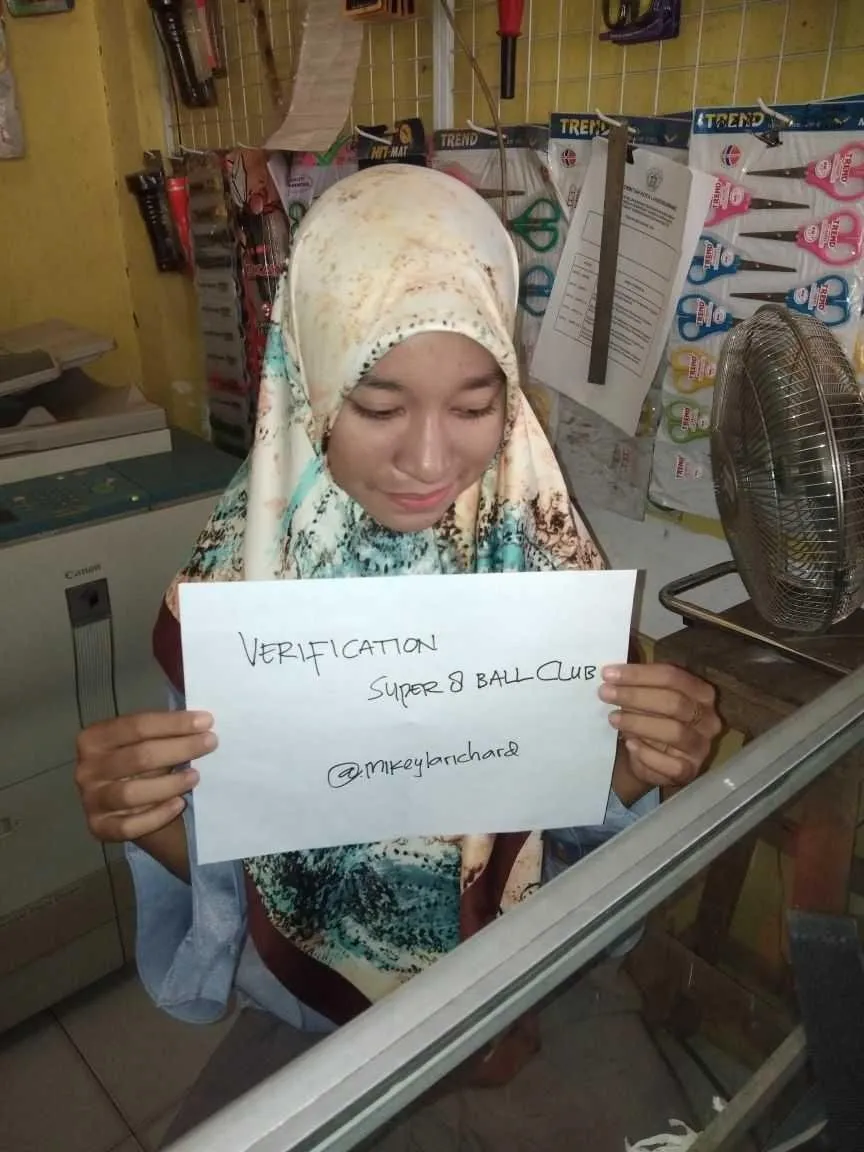 HIT-MAT
TREND
TREND
TREND
TREND
TREND
TREND
TREND
TREND
TREND
TREND
TREND
Canon
VERIFICATION
SUPER 8 BALL CLUB
@mikeylarichard